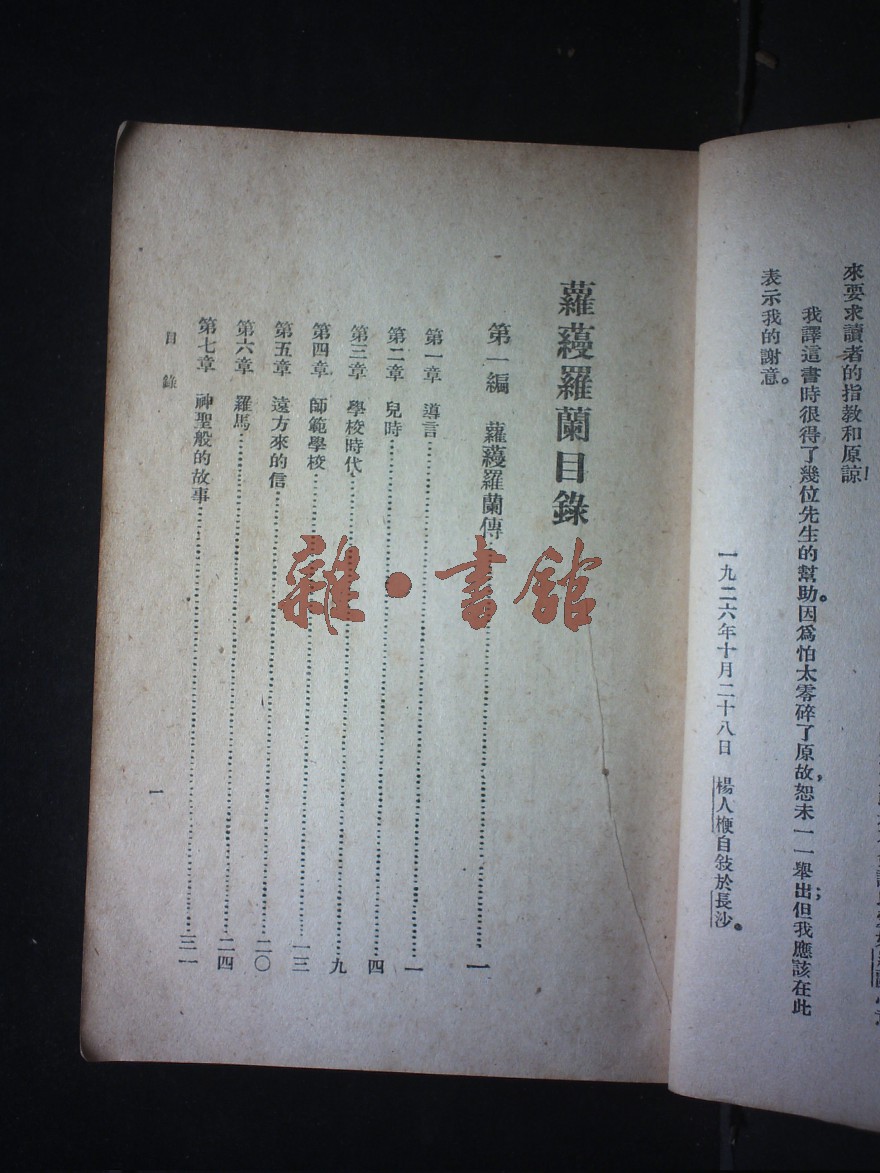 來要求讀者的指教和原諒！
我譯這書時很得了幾位先生的幫助。因爲怕太零碎了原故，恕未一一舉出；但我應該在此
表示我的謝意。
一九二六年十月二十八日　楊人楩自敍於長沙。
蘿蔓羅蘭目錄
第一編　蘿蔓羅蘭傳……一
第一章　導言……一
第二章　兒時……四
第三章　學校時代……九
第四章　師範學校……一三
第五章　遠方來的信……二〇
第六章　羅馬……二四
第七章　神聖般的故事……三一
目錄
一
雜·書館